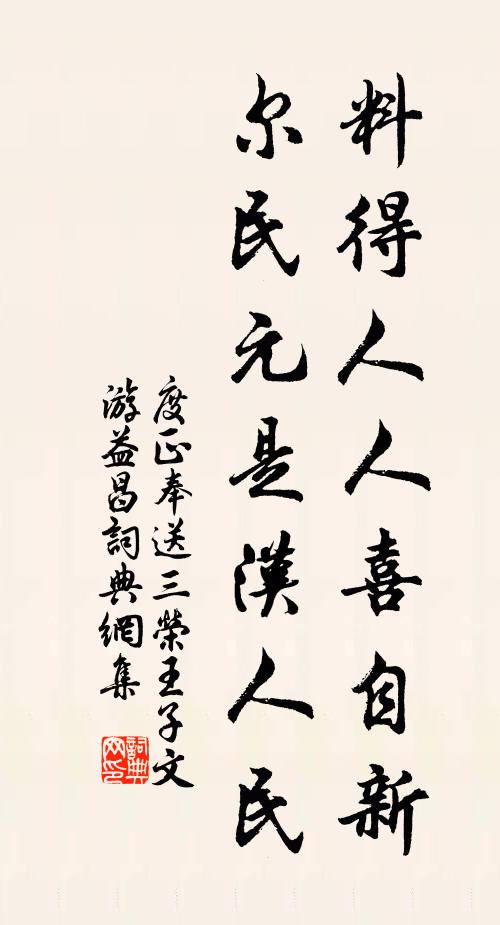 料得人人喜自新
尔民元是漢人民
度正奉送三榮王子文
游益昌詞典網集
詞典
网印